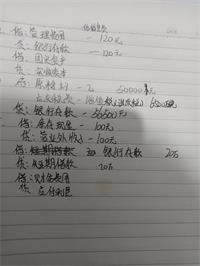 借：管理费用 —120元
贷：银行存款 —120元
借：固定资产
贷：实收资本
借：原材料 50000元
应交税费—应交税费(进项税) 6500元
贷：银行存款 —56500元
借：库存现金 —100元
贷：营业外收入—100元
借：银行存款 20万
贷：短期借款 20万
借：财务费用
贷：应付利息